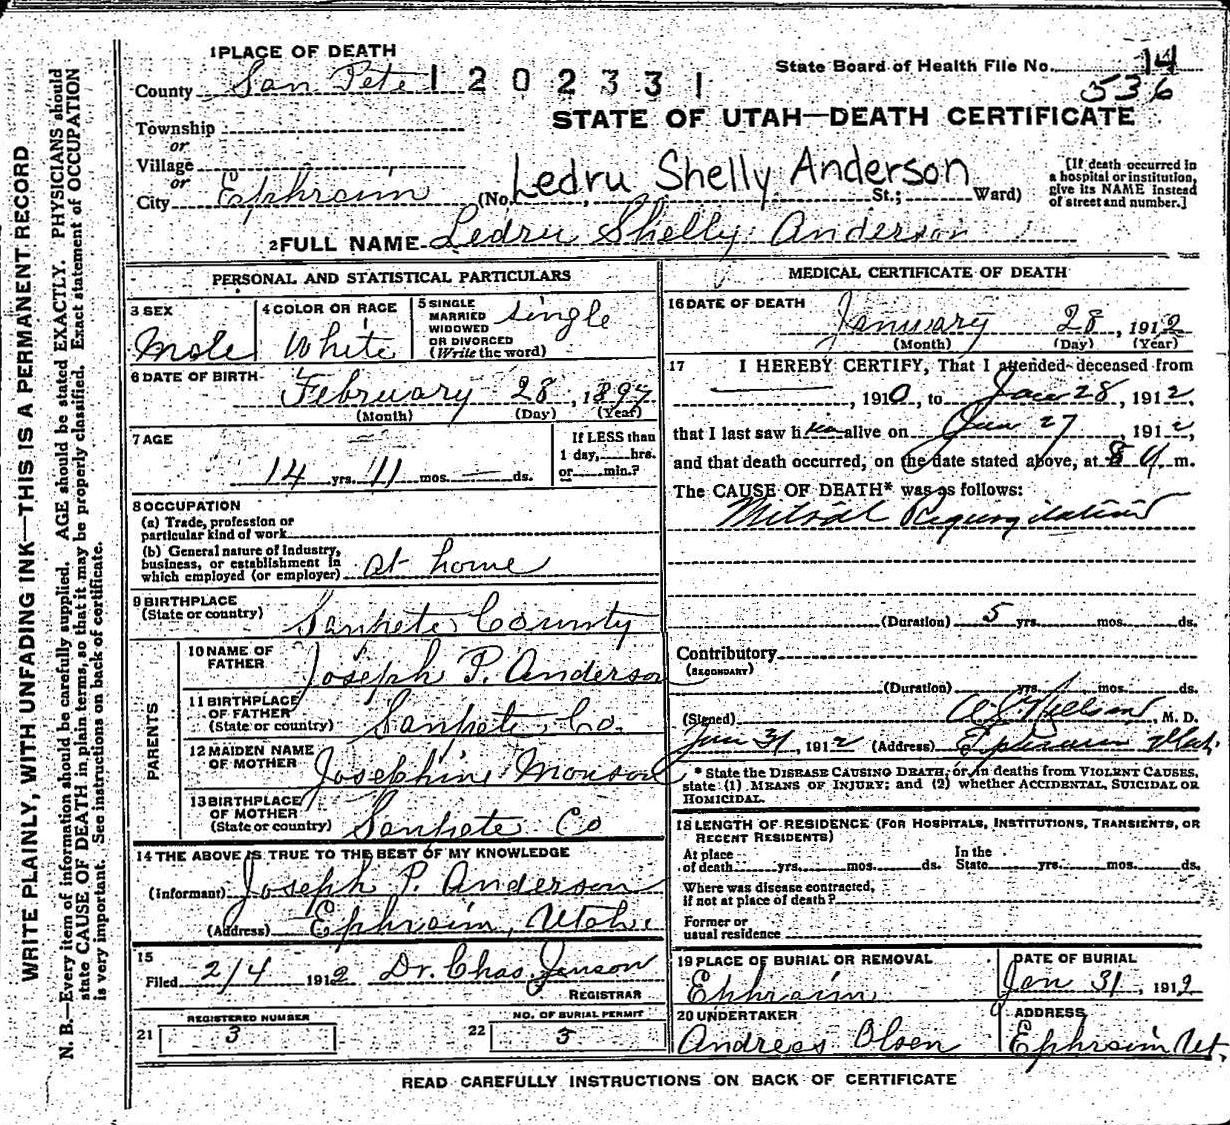 WRITE PLAINLY, WITH UNFADING INK—THIS IS A PERMANENT RECORD
N. B.—Every item of information should be carefully supplied. AGE should be stated EXACTLY. PHYSICIANS should
state CAUSE OF DEATH in plain terms, so that it may be properly classified. Exact statement of OCCUPATION
is very important. See instructions on back of certificate.
1 PLACE OF DEATH
County San Pete 1202331
State Board of Health File No. 14
536
STATE OF UTAH—DEATH CERTIFICATE
Township
or
Village
or
City Ephraim (No. Ledru Shelly Anderson St.; Ward)
[If death occurred in
a hospital or institution,
give its NAME instead
of street and number.]
2 FULL NAME Ledru Shelly Anderson
PERSONAL AND STATISTICAL PARTICULARS
3 SEX
Male
4 COLOR OR RACE
White
5 SINGLE
MARRIED
WIDOWED
OR DIVORCED
(Write the word)
single
6 DATE OF BIRTH
February 28, 1897
(Month) (Day) (Year)
7 AGE
14 yrs. 11 mos. — ds.
If LESS than
1 day, hrs.
or min.?
8 OCCUPATION
(a) Trade, profession or
particular kind of work
(b) General nature of Industry,
business, or establishment in
which employed (or employer) at home
9 BIRTHPLACE
(State or country) Sanpete County
PARENTS
10 NAME OF
FATHER Joseph P. Anderson
11 BIRTHPLACE
OF FATHER
(State or country) Sanpete Co.
12 MAIDEN NAME
OF MOTHER Josephine Monson
13 BIRTHPLACE
OF MOTHER
(State or country) Sanpete Co
14 THE ABOVE IS TRUE TO THE BEST OF MY KNOWLEDGE
(Informant) Joseph P. Anderson
(Address) Ephraim, Utah.
15
Filed 2/4 1912 Dr. Chas. Jenson
REGISTRAR
21
REGISTERED NUMBER
3
22
NO. OF BURIAL PERMIT
3
MEDICAL CERTIFICATE OF DEATH
16 DATE OF DEATH
January 28, 1912
(Month) (Day) (Year)
17 I HEREBY CERTIFY, That I attended deceased from
, 1910, to Jan 28, 1912,
that I last saw him alive on Jan 27 1912,
and that death occurred, on the date stated above, at 8 a m.
The CAUSE OF DEATH* was as follows:
Mitral Regurgitation
(Duration) 5 yrs. mos. ds.
Contributory
(SECONDARY)
(Duration) yrs. mos. ds.
(Signed) Nielson, M. D.
Jan 31, 1912 (Address) Ephraim Utah.
* State the DISEASE CAUSING DEATH, or, in deaths from VIOLENT CAUSES,
state (1) MEANS OF INJURY; and (2) whether ACCIDENTAL, SUICIDAL OR
HOMICIDAL.
18 LENGTH OF RESIDENCE (FOR HOSPITALS, INSTITUTIONS, TRANSIENTS, OR
RECENT RESIDENTS)
At place
of death yrs. mos. ds.
In the
State yrs. mos. ds.
Where was disease contracted,
if not at place of death?
Former or
usual residence
19 PLACE OF BURIAL OR REMOVAL
Ephraim
DATE OF BURIAL
Jan 31, 1912
20 UNDERTAKER
Andreas Olsen
ADDRESS
Ephraim Ut.
READ CAREFULLY INSTRUCTIONS ON BACK OF CERTIFICATE